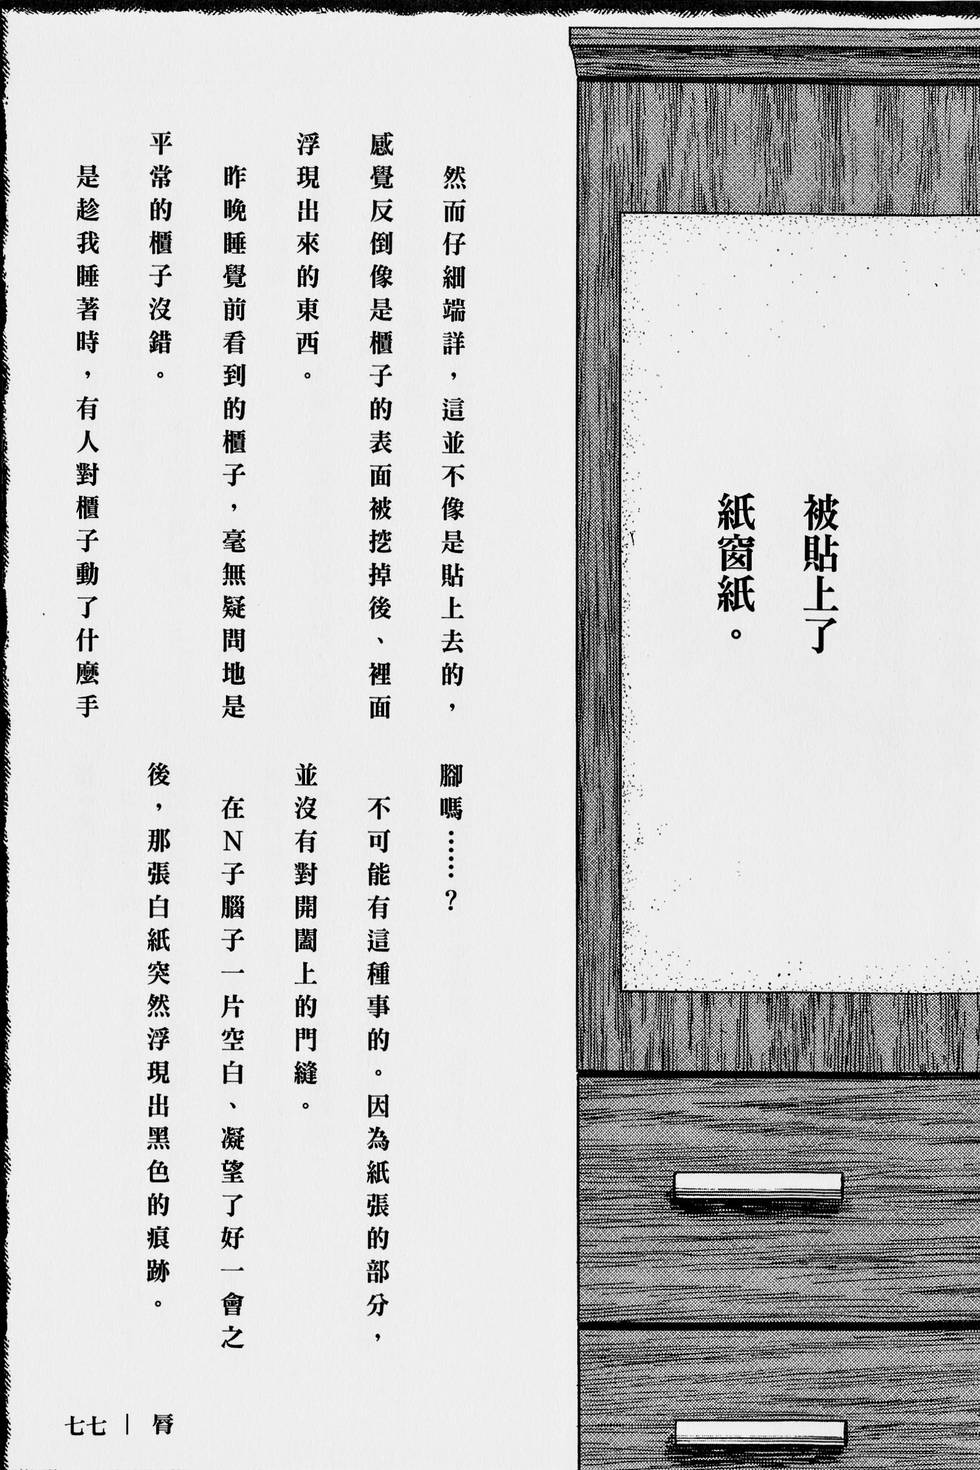 被貼上了
紙窗紙。
然而仔細端詳，這並不像是貼上去的，
感覺反倒像是櫃子的表面被挖掉後、裡面
浮現出來的東西。
昨晚睡覺前看到的櫃子，毫無疑問地是
平常的櫃子沒錯。
是趁我睡著時，有人對櫃子動了什麼手
腳嗎……？
不可能有這種事的。因為紙張的部分，
並沒有對開闔上的門縫。
在N子腦子一片空白、凝望了好一會之
後，那張白紙突然浮現出黑色的痕跡。
七七｜唇